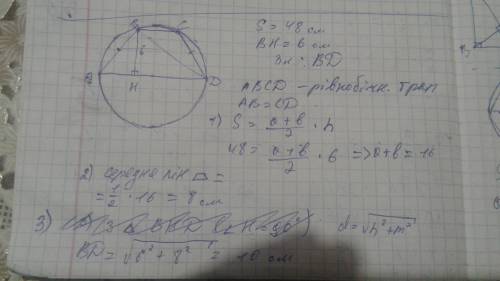 B C
6
A H D
S = 48 см
BH = 6 см
Зн: BD
ABCD - рівнобічн. трап
AB = CD
1) S = (a+b)/2 · h
48 = (a+b)/2 · 6 => a+b = 16
2) середня лін =
= 1/2 · 16 = 8 см
3)
d = √h²+m²
BD = √6²+8² = 10 см